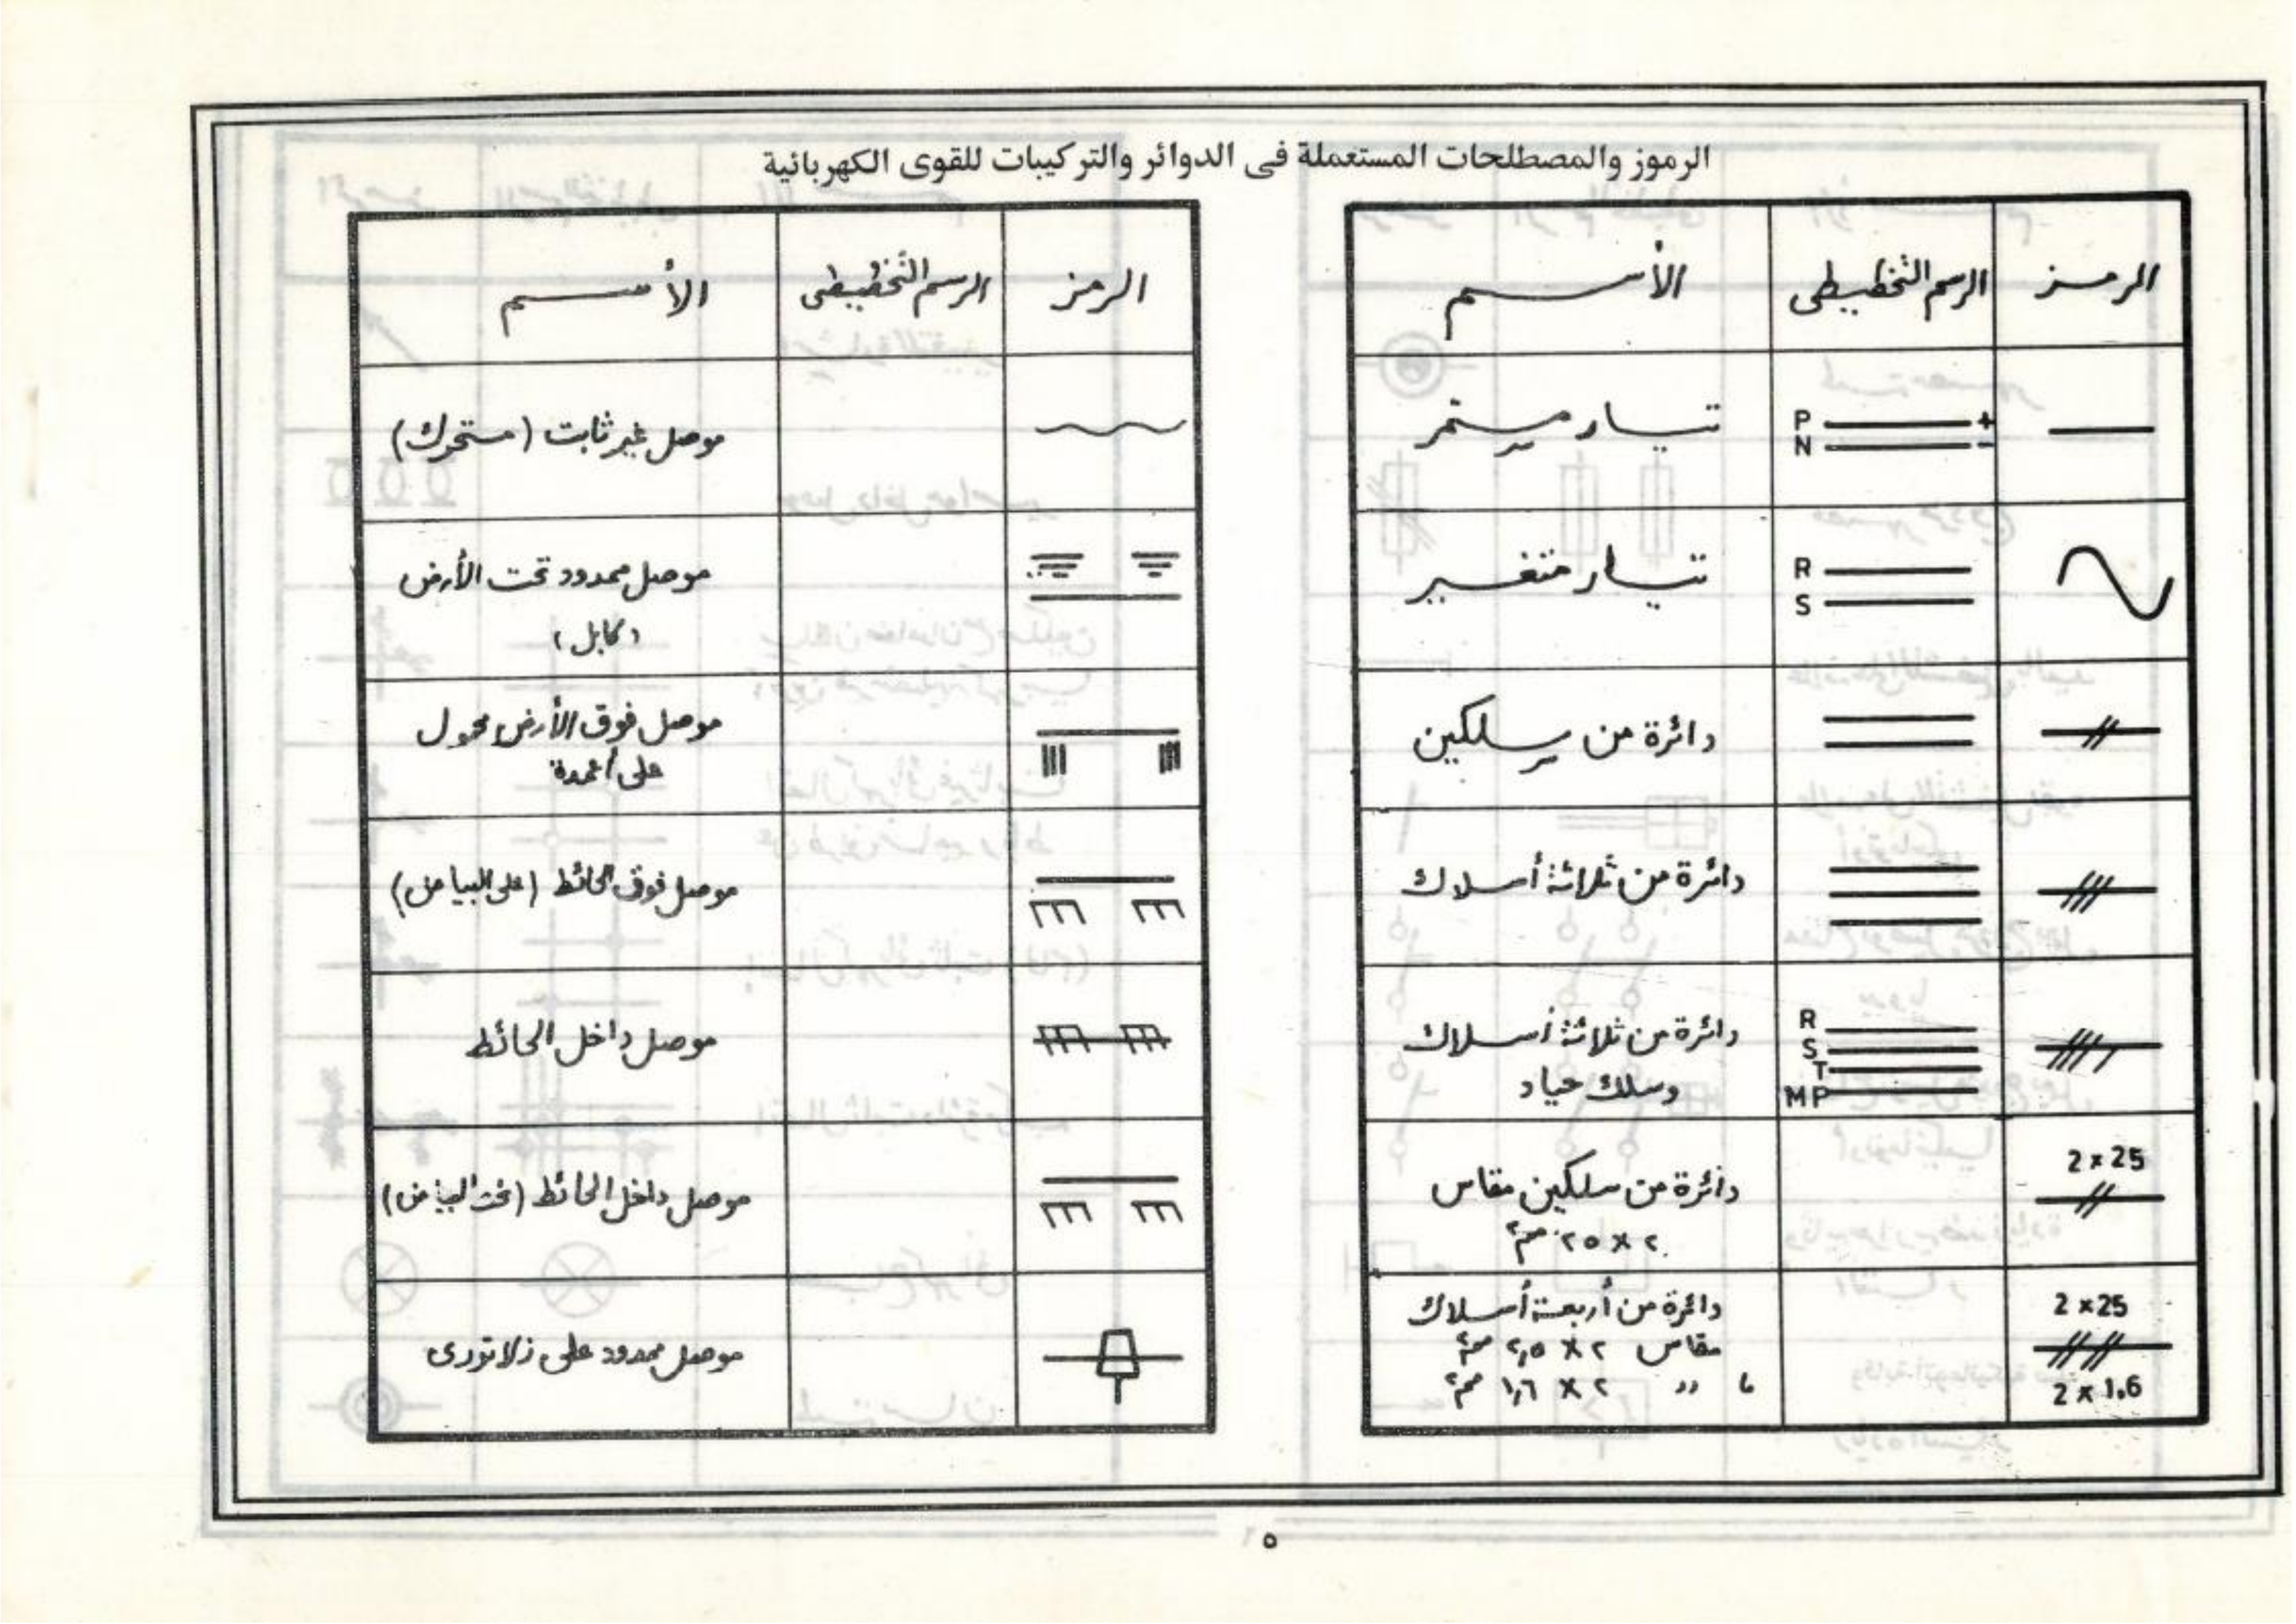 الرموز والمصطلحات المستعملة فى الدوائر والتركيبات للقوى الكهربائية
الرمز
الرسم التخطيطى
الأسم
تيار مستمر
P
+
N
-
تيار متغير
R
S
دائرة من سلكين
دائرة من ثلاثة أسلاك
دائرة من ثلاثة أسلاك
وسلك حياد
R
S
T
MP
2 x 25
دائرة من سلكين مقاس
٢ x ٢٥ مم٢
2 x 25
2 x 1.6
دائرة من أربعة أسلاك
مقاس ٢ x ٢,٥ مم٢
٢ x ١,٦ مم٢
الرمز
الرسم التخطيطى
الأسم
موصل غير ثابت (متحرك)
موصل ممدود تحت الأرض
(كابل)
موصل فوق الأرض محمول
على أعمدة
موصل فوق الحائط (على البياض)
موصل داخل الحائط
موصل داخل الحائط (تحت البياض)
موصل ممدود على زلاتورى
٥